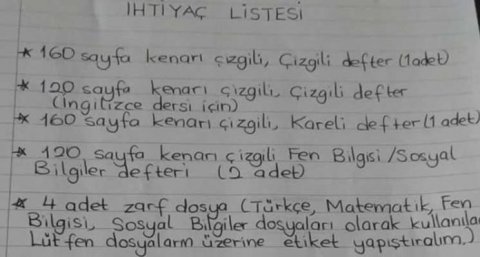 İHTİYAÇ LİSTESİ
* 160 sayfa kenarı çizgili, Çizgili defter (1adet)
* 120 sayfa kenarı çizgili, Çizgili defter
(İngilizce dersi için)
* 160 sayfa kenarı çizgili, Kareli defter (1 adet)
* 120 sayfa kenarı çizgili Fen Bilgisi /Sosyal
Bilgiler defteri (2 adet)
* 4 adet zarf dosya (Türkçe, Matematik, Fen
Bilgisi, Sosyal Bilgiler dosyaları olarak kullanıla
Lütfen dosyaların üzerine etiket yapıştıralım.)